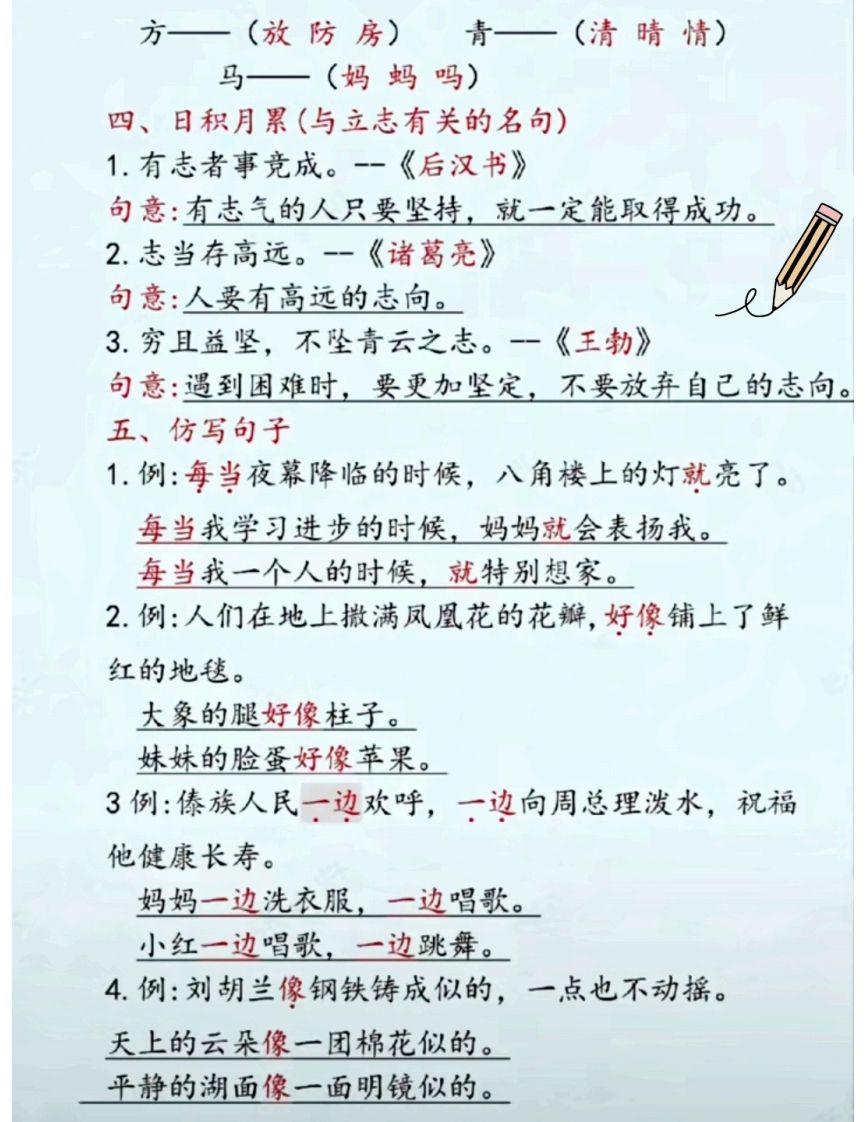 方——（放 防 房） 青——（清 晴 情）
马——（妈 蚂 吗）
四、日积月累(与立志有关的名句)
1.有志者事竞成。--《后汉书》
句意:有志气的人只要坚持，就一定能取得成功。
2.志当存高远。--《诸葛亮》
句意:人要有高远的志向。
3.穷且益坚，不坠青云之志。--《王勃》
句意:遇到困难时，要更加坚定，不要放弃自己的志向。
五、仿写句子
1.例:每当夜幕降临的时候，八角楼上的灯就亮了。
每当我学习进步的时候，妈妈就会表扬我。
每当我一个人的时候，就特别想家。
2.例:人们在地上撒满凤凰花的花瓣,好像铺上了鲜
红的地毯。
大象的腿好像柱子。
妹妹的脸蛋好像苹果。
3例:傣族人民一边欢呼，一边向周总理泼水，祝福
他健康长寿。
妈妈一边洗衣服，一边唱歌。
小红一边唱歌，一边跳舞。
4.例:刘胡兰像钢铁铸成似的，一点也不动摇。
天上的云朵像一团棉花似的。
平静的湖面像一面明镜似的。